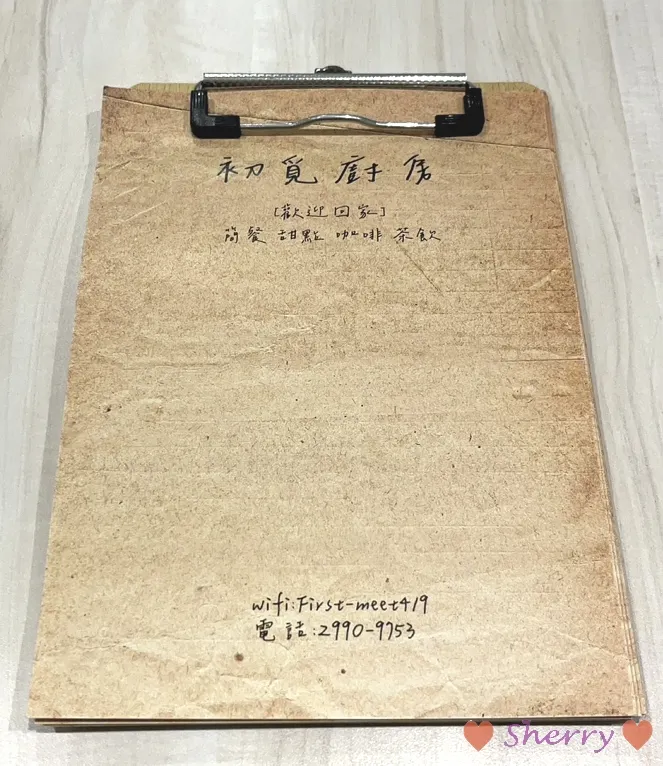 初覓廚房
[歡迎回家]
簡餐 甜點 咖啡 茶飲
wifi:First-meet419
電話:2990-9753
Sherry